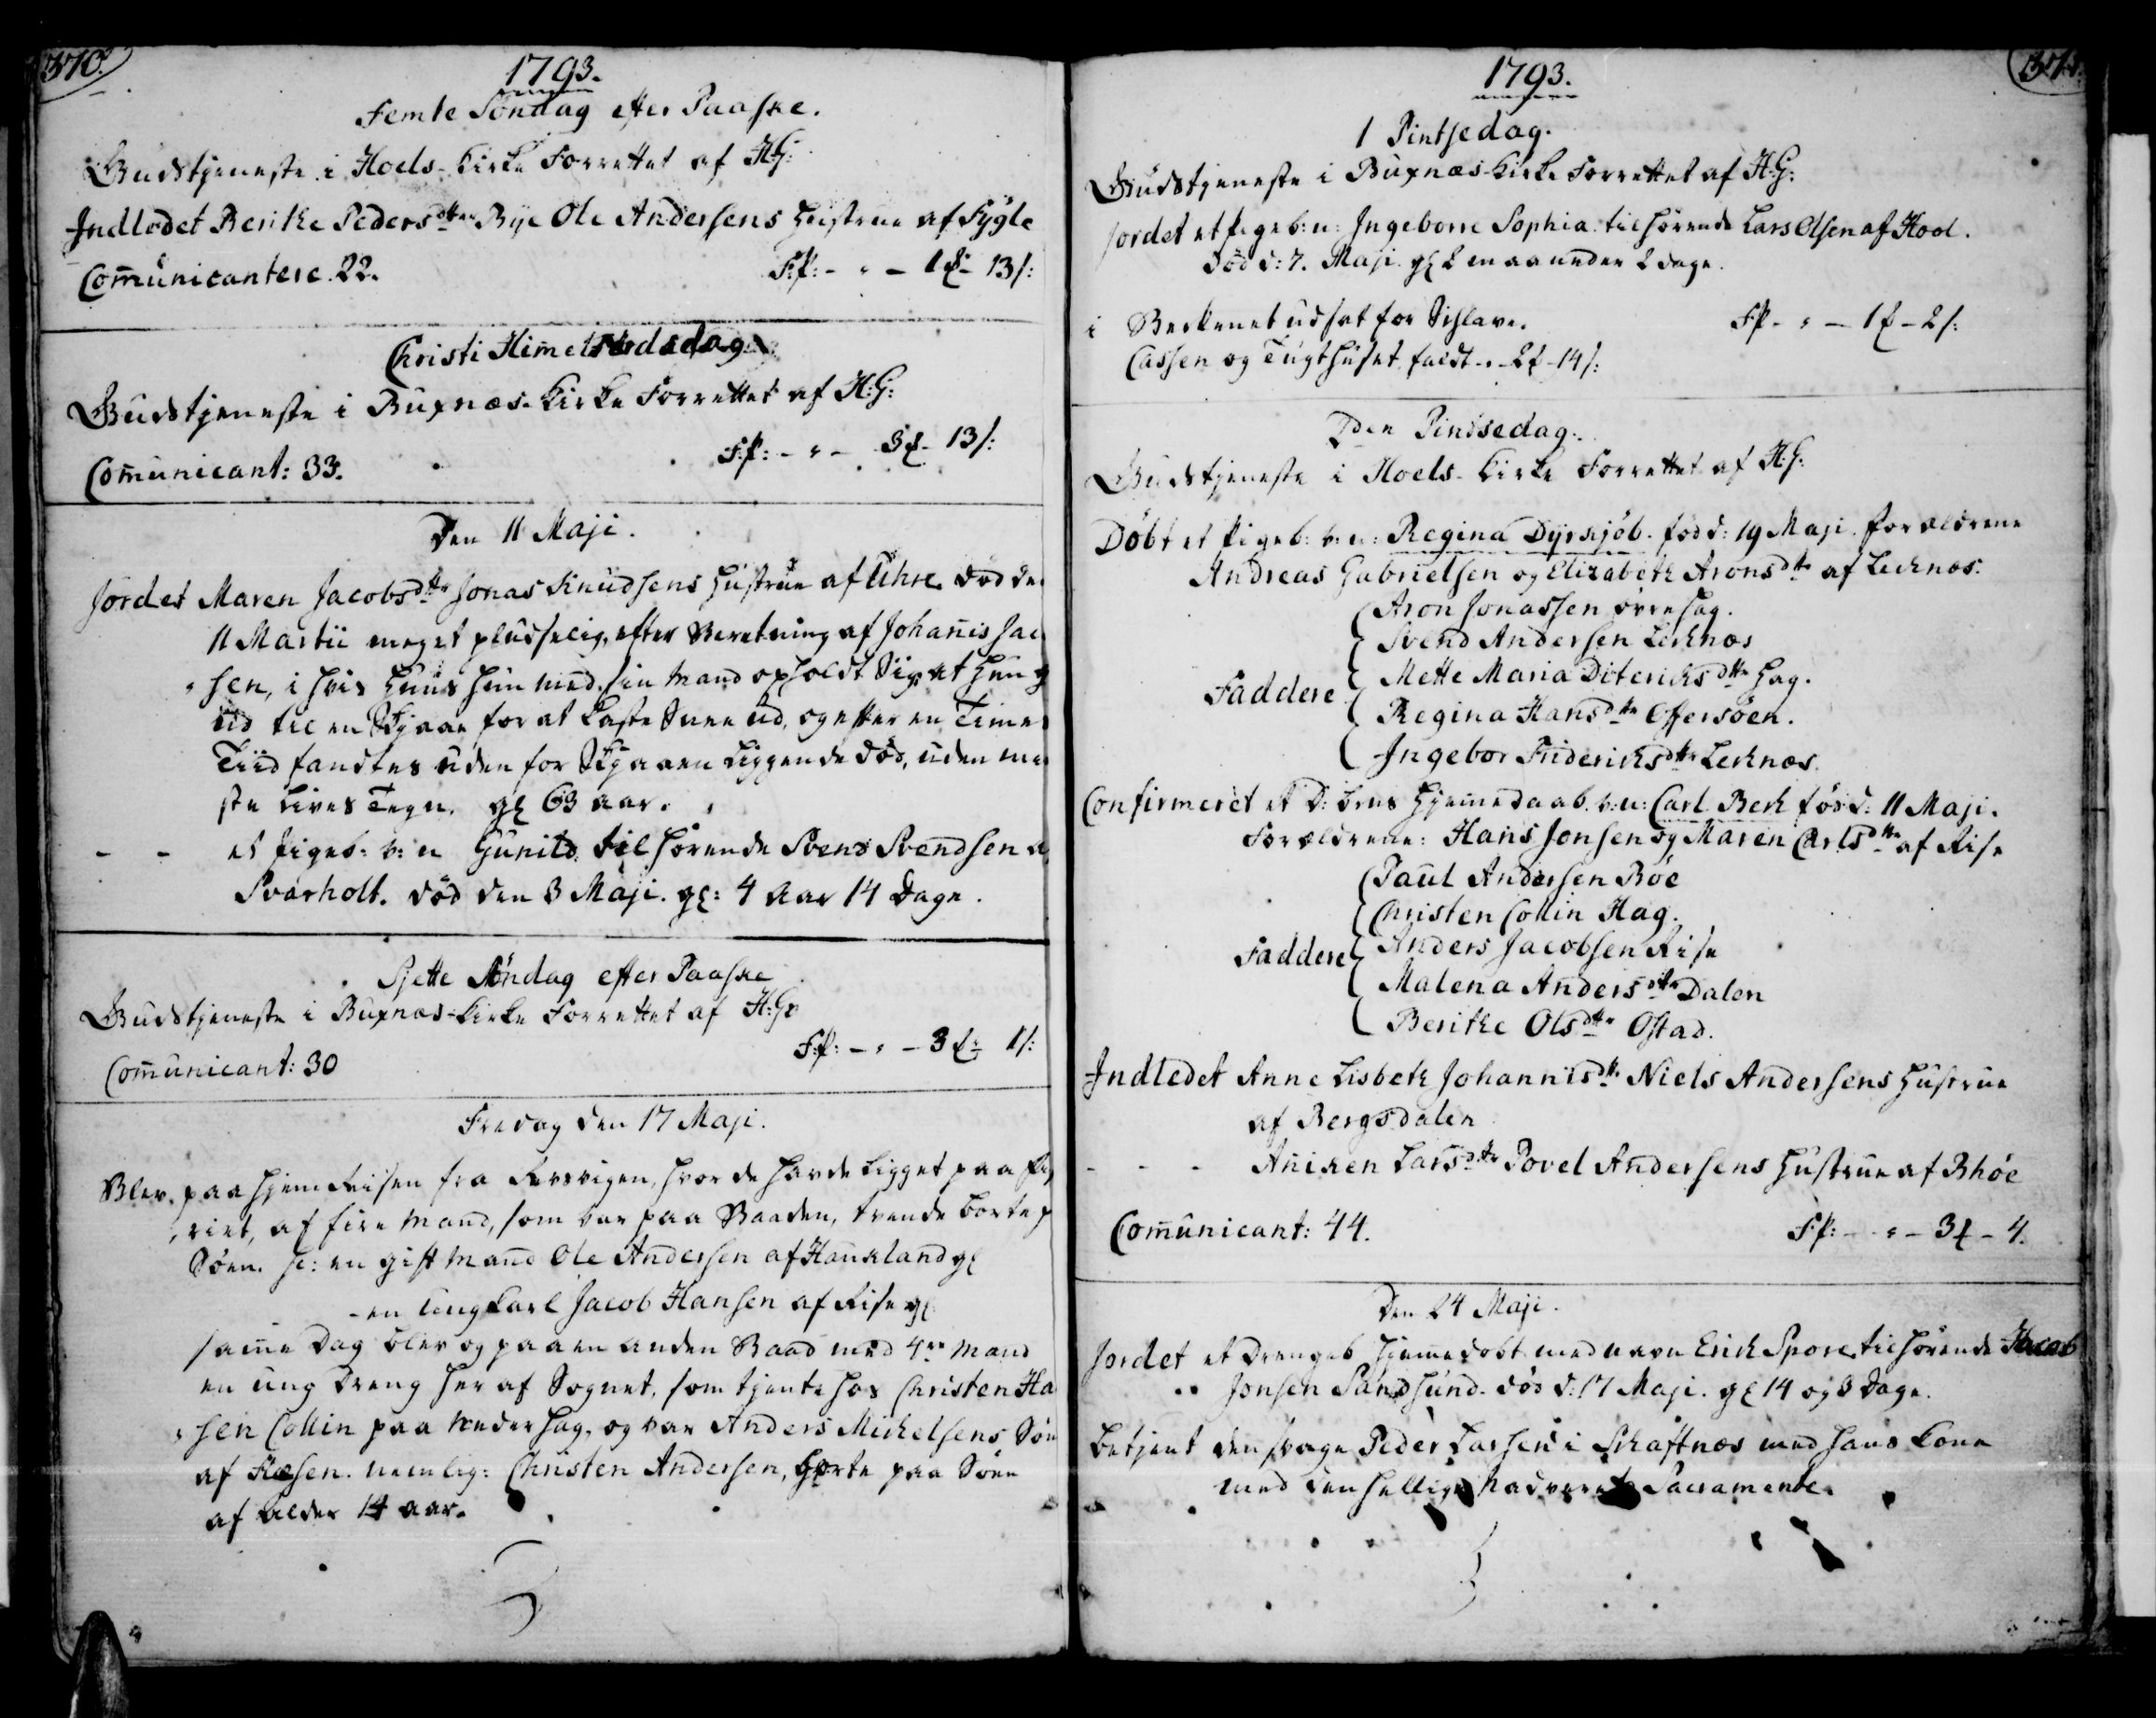 370.
1793.
Femte Söndag efter Paaske.
Gudstjeneste i Hoels-Kirke Forrettet af H:G:
Indledet Berithe Pedersdtr Bye Ole Andersens Hustrue af Fygle
Comunicantere 22. F:P: - " - 1 ℔ - 13 s:
Christi Himelfardsdag
Gudstjeneste i Buxnæs-Kirke Forrettet af H:G:
Comunicant: 33. F:P: - " - 3 ℔ - 13 s:
Den 11 Maji.
Jordet Maren Jacobsdtr Jonas Knudsens Hustrue af Uhre død de
11 Martii meget pludselig, efter Beretning af Johanis Jac
" sen, i hvis Huus hun med sin Mand opholdt Sig at hun g
ud til en Skjaae for at kaste Snee ud, og efter en Times
Tiid fandtes uden for Skjaaen liggende død, uden me
ste Livets Tegn. gl 63 aar.
- - et pigeb: v: n Gunild tilhørende Svend Svendsen a
Svarholt. død den 3 Maji. gl: 4 Aar 14 Dage.
Sjette Söndag efter Paaske
Gudstjeneste i Buxnæs-Kirke Forrettet af H:G:
Comunicant: 30 F:P: - " - 3 ℔ - 1 s:
Fredag den 17 Maji.
Blev paa Hjem Reisen fra Rersvigen, hvor de havde ligget paa Fis
" riet, af fire Mand, som var paa Baaden, tvende borte p
Söen. sc: en gift Mand Ole Andersen af Haukland gl
- en Ung Karl Jacob Hansen af Rise gl
samme Dag blev og paa en anden Baad med 4re Mand
en ung Dreng her af Sognet, som tjente hos Christen Ha
" sen Collin paa Nederhag, og var Anders Michelsens Sön
af Hæsen. nemlig: Christen Andersen, borte paa Söen
af Alder 14 aar.
371.
1793.
1 Pintsedag.
Gudstjeneste i Buxnæs-Kirke Forrettet af H:G:
Jordet et pigeb: n: Ingeborre Sophia tilhørende Lars Olsen af Hool.
død d: 7. Maji. gl 2 maaneder 2 dage.
i Bekkenet udsat for Sclave- FP - " - 1 ℔ - 2 s:
Cassen og Tugthuset faldt - " - 2 ℔ - 14 s:
2den Pindsedag.
Gudstjeneste i Hoels-Kirke Forrettet af H:G:
Döbt et pigeb: v: n: Regina Dyrskjöb. född: 19 Maji. forældrene
Andreas Gabrielsen og Elizabeth Aronsdtr af Lecknæs.
Aron Jonassen övrehag.
Svend Andersen Lecknæs
Faddere Mette Maria Ditericksdtr Hag.
Regina Hansdtr Offersöen.
Ingebor Fridericksdtr Lecknæs.
Confirmeret et D: barns Hjemedaab. v: n: Carl Berh född: 11 Maji.
Forældrene: Hans Jonsen og Maren Carlsdtr af Rise
Paul Andersen Böe
Christen Collin Hag.
Faddere Anders Jacobsen Rise
Malena Andersdtr Dalen
Berithe Olsdtr Ostad.
Indledet Anne Lisbeth Johannisdtr Niels Andersens Hustrue
af Bergsdalen
- - - Aniken Larsdtr Povel Andersens Hustrue af Bhöe
Comunicant: 44. F:P: - " - 3 ℔ - 4.
Den 24 Maji.
Jordet et Drengeb. Hjemedöbt med navn Erich Spore tilhørende Jacob
Jonsen Sandsund. död d: 17 Maji. gl 14 og 3 Dage.
betjent den svage Peder Larsen i Schaftnæs med hans Kone
med den hellige Nadveres Sacramente.